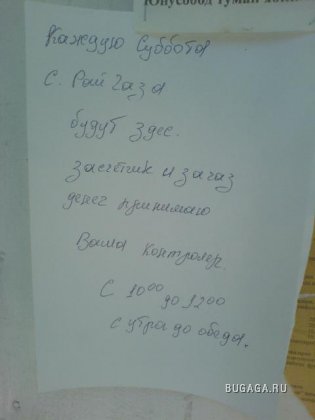 Юнусобод туман
Каждую Суббота
С. Рай Газа
будут здес.
засчётчик и за газ
денег принимаю
Ваша контролер.
С 10⁰⁰ до 1200
с утра до обеда.
BUGAGA.RU